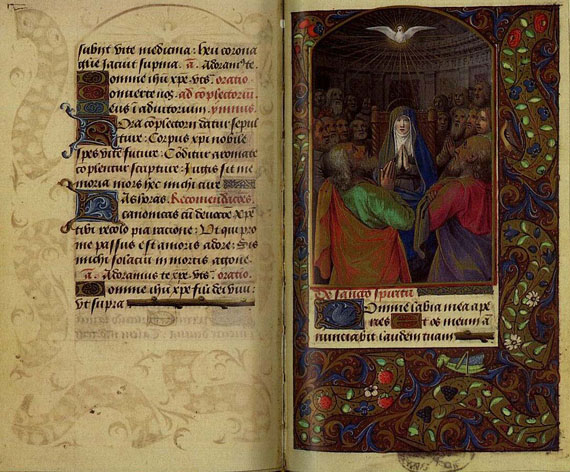 subnt vite medicina: heu corona
glie iacuit supina. a. Adoram⁹ te
Domine ihu xpe. vts. oratio.
Converte nos. ad co̅pletoriu̅.
Deus i̅ adiutorium. ymnus.
Hora co̅pletorii datur sepul
ture: Corpus xpi nobile
spes vite future: Co̅ditur aromate
co̅plentur scripture: Iugis sit me
moria mors hec michi cure
Has horas. Recomendac̅o̅es.
canonicas cu̅ devoc̅o̅e xp̅e
tibi recolo pia racione: Ut qui pro
me passus est amoris ardore: Sis
michi solacium in mortis agone
a. Adoramus te xp̅e. vts. oratio.
Domine ihu xpe fili dei vivi:
vt supra
De sancto spiritu
Domine labia mea ape
ries Et os meum a̅
nunciabit laudem tuam